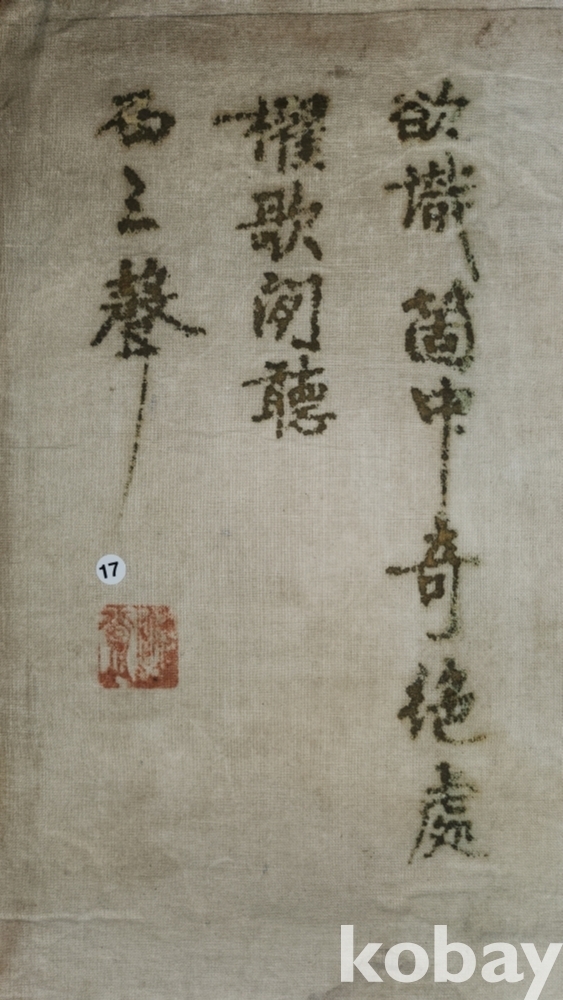 欲識箇中奇絶處
櫂歌閒聽
兩三聲
17
kobay